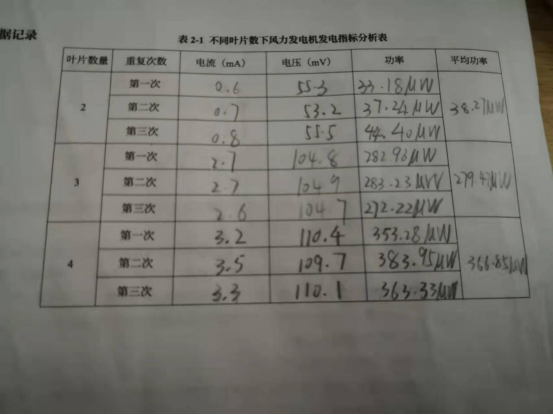 据记录
表 2-1 不同叶片数下风力发电机发电指标分析表
叶片数量 重复次数 电流（mA） 电压（mV） 功率 平均功率
2 第一次 0.6 55.3 33.18μW 38.27μW
第二次 0.7 53.2 37.24μW
第三次 0.8 55.5 44.40μW
3 第一次 2.7 104.8 282.96μW 279.47μW
第二次 2.7 104.9 283.23μW
第三次 2.6 104.7 272.22μW
4 第一次 3.2 110.4 353.28μW 366.85μW
第二次 3.5 109.7 383.95μW
第三次 3.3 110.1 363.33μW